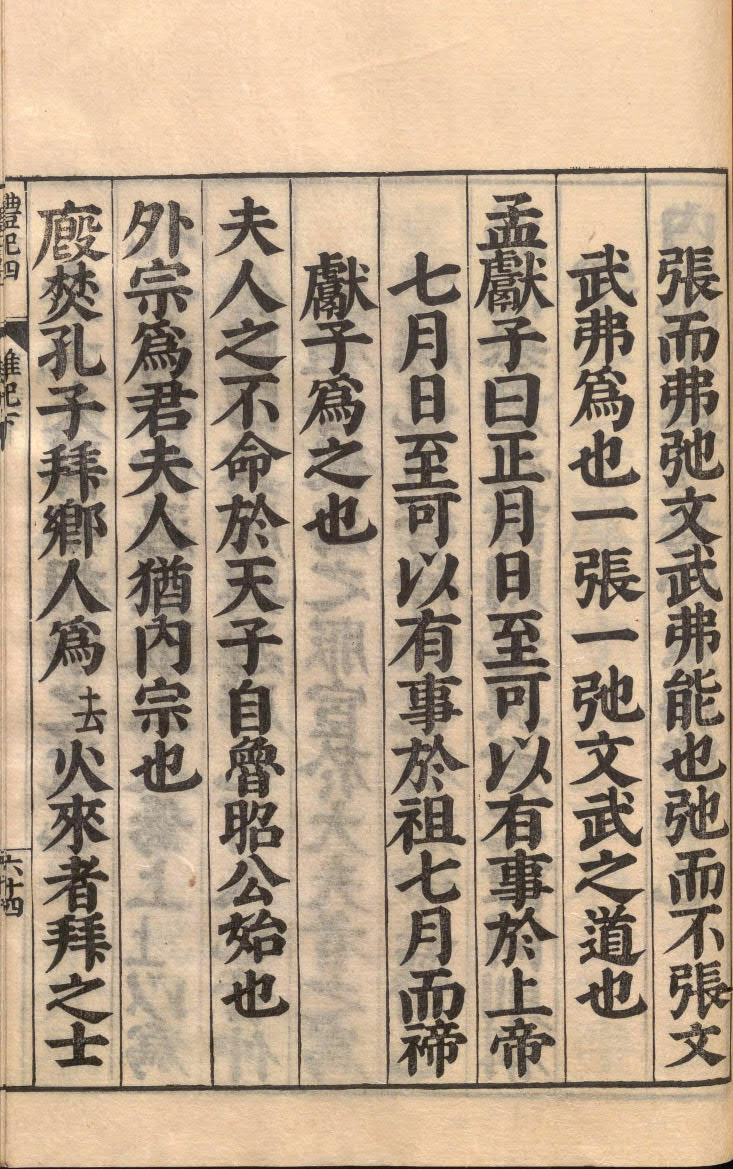 張而弗弛文武弗能也弛而不張文
武弗爲也一張一弛文武之道也
孟獻子曰正月日至可以有事於上帝
七月日至可以有事於祖七月而禘
獻子爲之也
夫人之不命於天子自魯昭公始也
外宗爲君夫人猶內宗也
廄焚孔子拜鄉人爲去火來者拜之士
禮記四
雜記下
六十四